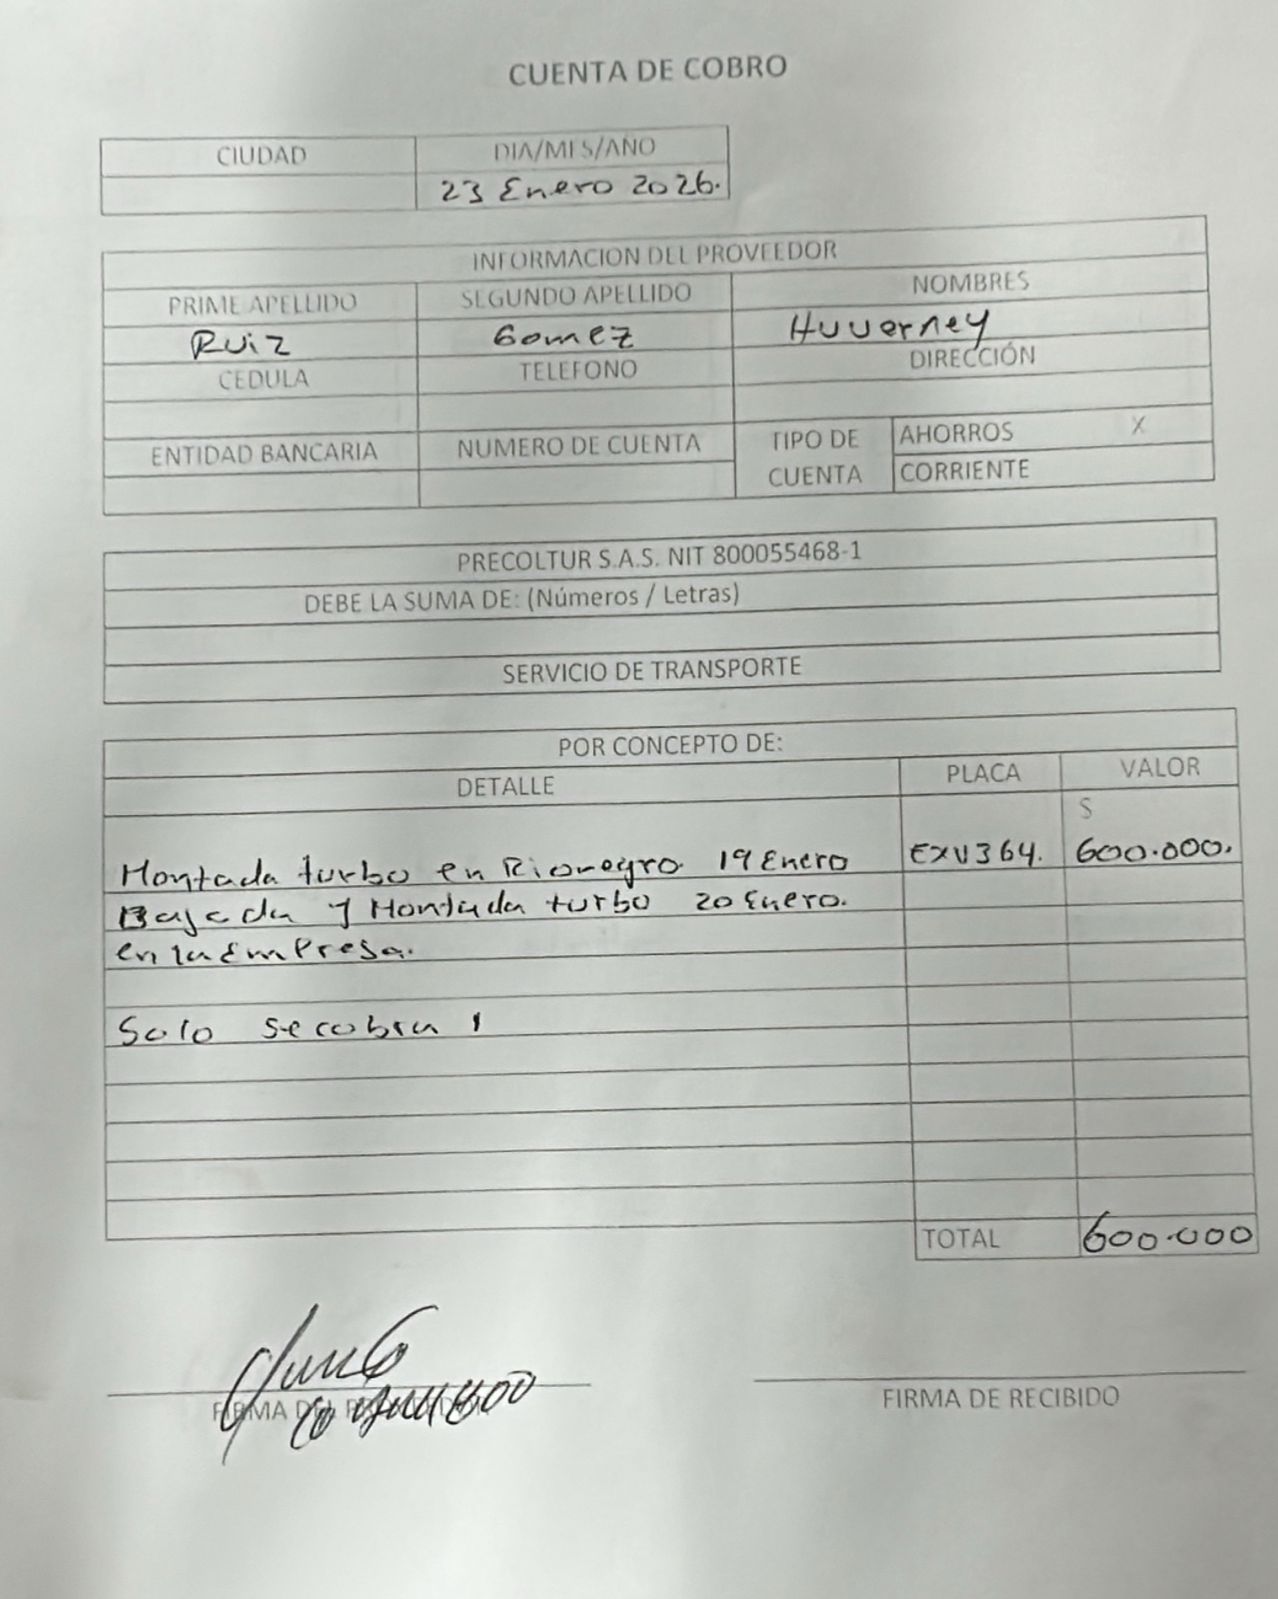 CUENTA DE COBRO
CIUDAD DIA/MES/AÑO
23 Enero 2026.
INFORMACION DEL PROVEEDOR
PRIME APELLIDO SEGUNDO APELLIDO NOMBRES
Ruiz Gomez Huverney
CEDULA TELEFONO DIRECCIÓN
ENTIDAD BANCARIA NUMERO DE CUENTA TIPO DE CUENTA AHORROS X
CORRIENTE
PRECOLTUR S.A.S. NIT 800055468-1
DEBE LA SUMA DE: (Números / Letras)
SERVICIO DE TRANSPORTE
POR CONCEPTO DE:
DETALLE PLACA VALOR
$
Montada turbo en Rionegro 19 Enero EXU364. 600.000.
Bajada y Montada turbo 20 Enero.
en la Empresa.
Solo se cobra 1
TOTAL 600.000
FIRMA DEL
FIRMA DE RECIBIDO